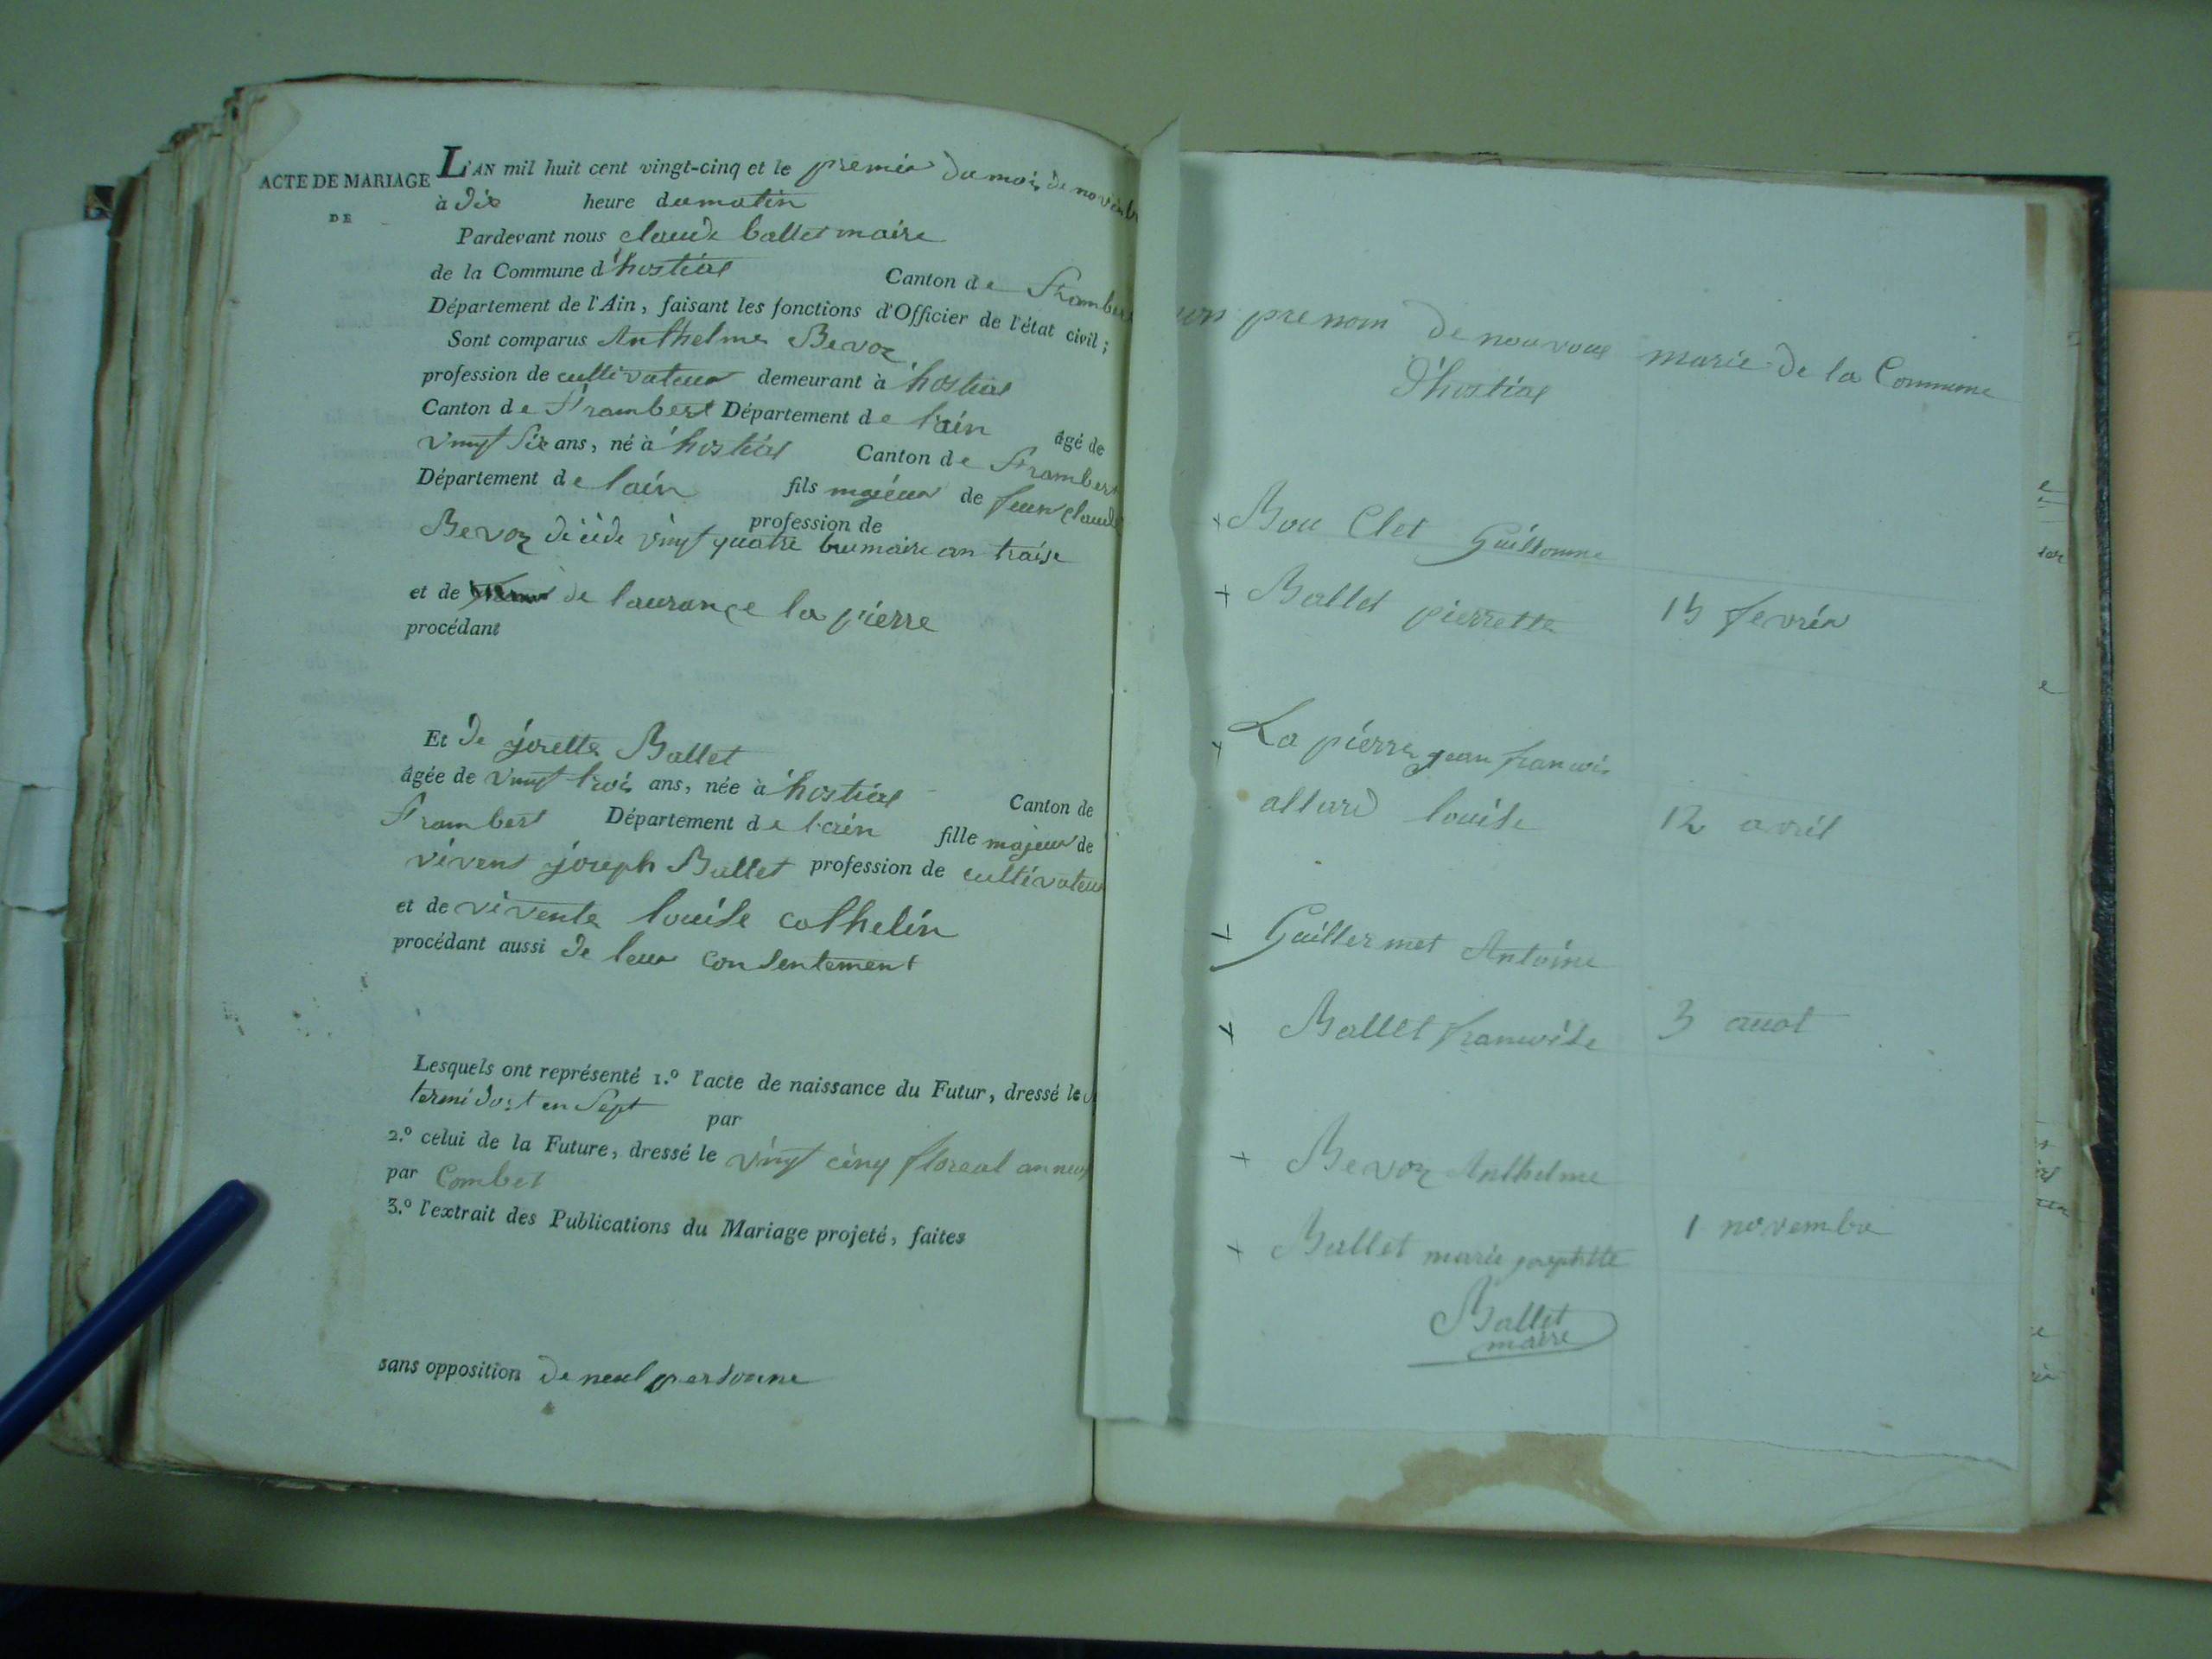 ACTE DE MARIAGE
DE
L'AN mil huit cent vingt-cinq et le premier du mois de novembr
à dix heure du matin
Pardevant nous claude ballet maire
de la Commune d'hostial Canton de St rambert
Département de l'Ain, faisant les fonctions d'Officier de l'état civil;
Sont comparus Anthelme Bevoz
profession de cultivateur demeurant à hostial
Canton de St rambert Département de lain âgé de
vingt six ans, né à hostial Canton de St rambert
Département de lain fils majeur de feux claude
profession de
Bevoz décédé vingt quatre brumaire an traise
et de de laurance la pierre
procédant
Et de josette Ballet
âgée de vingt trois ans, née à hostial Canton de
St rambert Département de lain fille majeur de
vivent joseph Ballet profession de cultivateur
et de vivente louise cothelin
procédant aussi de leur consentement
Lesquels ont représenté 1.º l'acte de naissance du Futur, dressé le
termidort en sept par
2.º celui de la Future, dressé le vingt cinq floreal an neuf
par Combet
3.º l'extrait des Publications du Mariage projeté, faites
sans opposition de neul personne
prenom de nouvous marie de la Commune
d'hostial
+ Bou Clet Guillomme
+ Ballet pierrette 15 fevrier
+ La pierre jean francois
allard louise 12 avril
+ Guillermet Antoine
+ Ballet francoise 3 auot
+ Bevoz Anthelme
+ Ballet marie josephtte 1 novembre
Ballet
maire